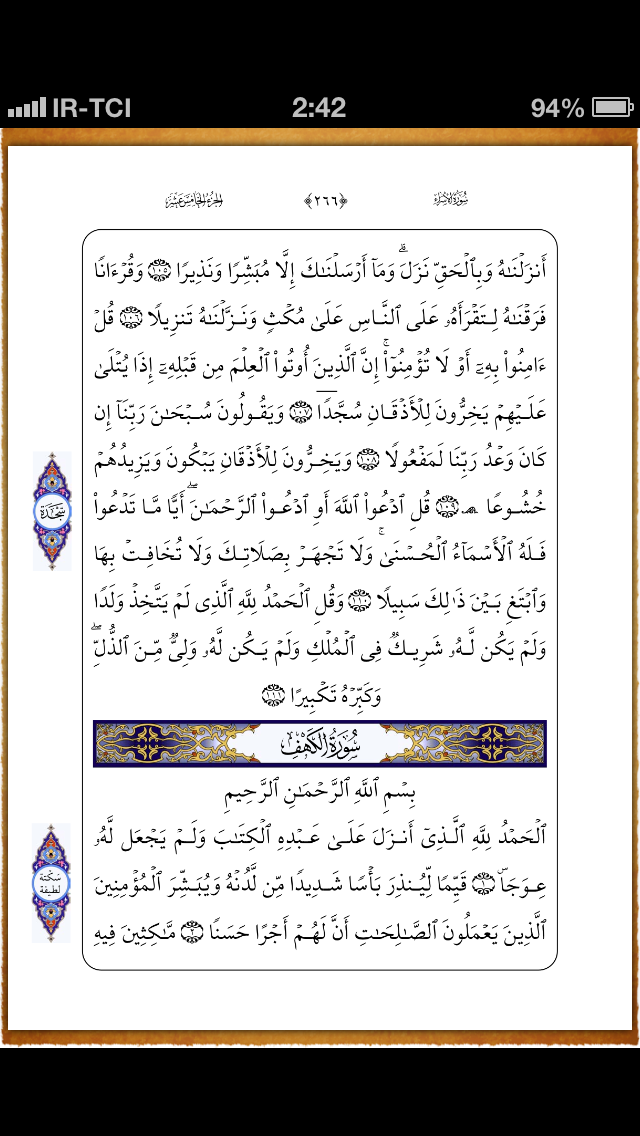 IR-TCI 2:42 94%
سورة الإسراء ﴿٢٦٦﴾ الجزء الخامس عشر
أَنزَلْنَٰهُ وَبِٱلْحَقِّ نَزَلَ ۗ وَمَآ أَرْسَلْنَٰكَ إِلَّا مُبَشِّرًا وَنَذِيرًا ١٠٥ وَقُرْءَانًا
فَرَقْنَٰهُ لِتَقْرَأَهُۥ عَلَى ٱلنَّاسِ عَلَىٰ مُكْثٍ وَنَزَّلْنَٰهُ تَنزِيلًا ١٠٦ قُلْ
ءَامِنُوا۟ بِهِۦٓ أَوْ لَا تُؤْمِنُوٓا۟ ۚ إِنَّ ٱلَّذِينَ أُوتُوا۟ ٱلْعِلْمَ مِن قَبْلِهِۦٓ إِذَا يُتْلَىٰ
عَلَيْهِمْ يَخِرُّونَ لِلْأَذْقَانِ سُجَّدًا ١٠٧ وَيَقُولُونَ سُبْحَٰنَ رَبِّنَآ إِن
كَانَ وَعْدُ رَبِّنَا لَمَفْعُولًا ١٠٨ وَيَخِرُّونَ لِلْأَذْقَانِ يَبْكُونَ وَيَزِيدُهُمْ
خُشُوعًا ۩ ١٠٩ قُلِ ٱدْعُوا۟ ٱللَّهَ أَوِ ٱدْعُوا۟ ٱلرَّحْمَٰنَ ۖ أَيًّا مَّا تَدْعُوا۟
سجدة
فَلَهُ ٱلْأَسْمَآءُ ٱلْحُسْنَىٰ ۚ وَلَا تَجْهَرْ بِصَلَاتِكَ وَلَا تُخَافِتْ بِهَا
وَٱبْتَغِ بَيْنَ ذَٰلِكَ سَبِيلًا ١١٠ وَقُلِ ٱلْحَمْدُ لِلَّهِ ٱلَّذِى لَمْ يَتَّخِذْ وَلَدًا
وَلَمْ يَكُن لَّهُۥ شَرِيكٌ فِى ٱلْمُلْكِ وَلَمْ يَكُن لَّهُۥ وَلِىٌّ مِّنَ ٱلذُّلِّ ۖ
وَكَبِّرْهُ تَكْبِيرًا ١١١
سورة الكهف
بِسْمِ ٱللَّهِ ٱلرَّحْمَٰنِ ٱلرَّحِيمِ
ٱلْحَمْدُ لِلَّهِ ٱلَّذِىٓ أَنزَلَ عَلَىٰ عَبْدِهِ ٱلْكِتَٰبَ وَلَمْ يَجْعَل لَّهُۥ
عِوَجَا ۜ ١ قَيِّمًا لِّيُنذِرَ بَأْسًا شَدِيدًا مِّن لَّدُنْهُ وَيُبَشِّرَ ٱلْمُؤْمِنِينَ
سكتة
لطيفة
ٱلَّذِينَ يَعْمَلُونَ ٱلصَّٰلِحَٰتِ أَنَّ لَهُمْ أَجْرًا حَسَنًا ٢ مَّٰكِثِينَ فِيهِ